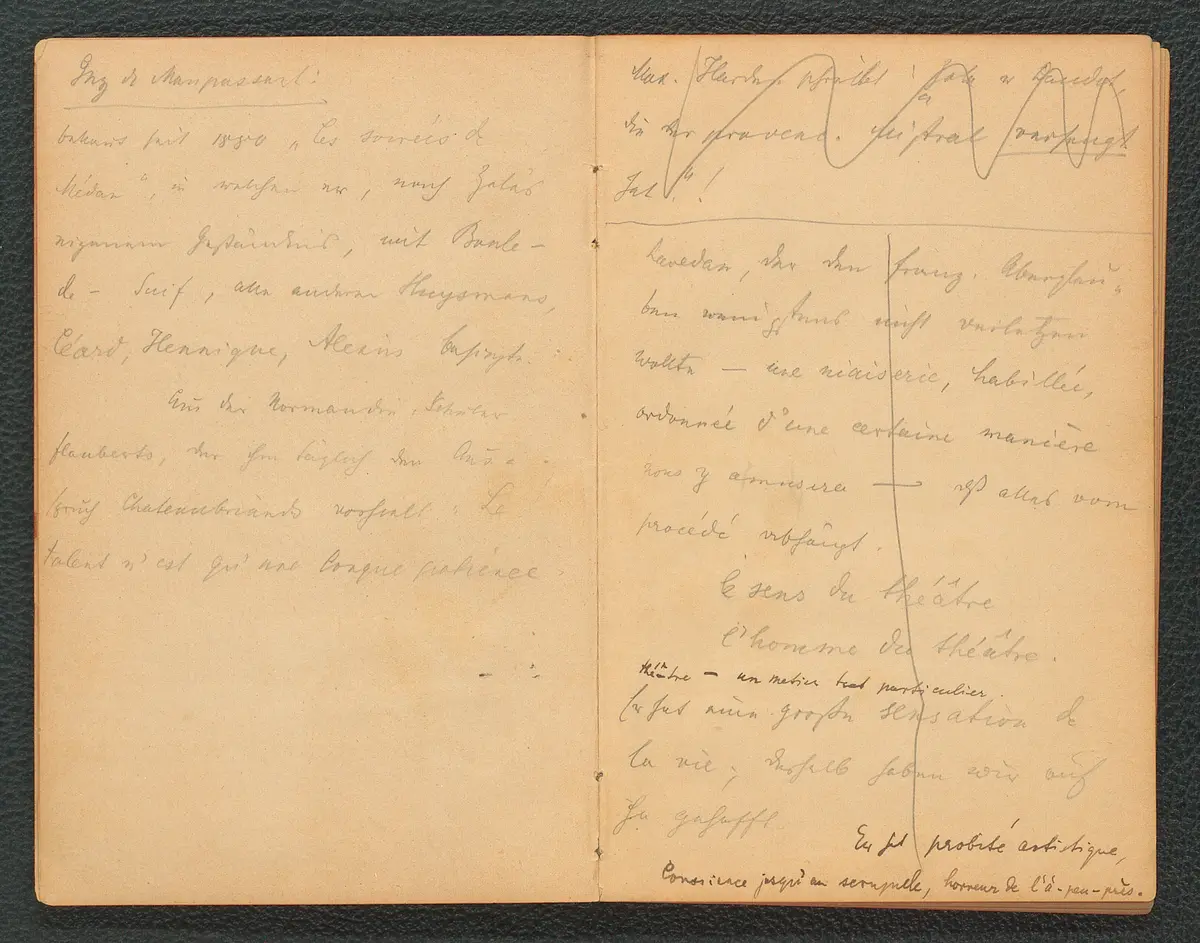 Guy de Maupassant:
bekannt seit 1880 „Les soirées de
Médan“, in welchen er, nach Zolas
eigenem Geständnis, mit Boule-
de-Suif, alle anderen Huysmans,
Céard, Hennique, Alexis besiegte.
Aus der Normandie, Schüler
Flauberts, der ihm täglich den Aus-
spruch Chateaubriands vorhielt „Le
talent n'est qu'une longue patience
Max. Harden schreibt: hate er Daudet,
die der provenc. Mistral versengt
hat“!
Lavedan, der den franz. Aberglau-
ben wenigstens nicht verletzen
wollte — une niaiserie, habillée,
ordonnée d'une certaine manière
nous y amusera — daß alles vom
procédé abhängt.
le sens du théâtre
l'homme du théâtre.
théâtre — un metier tout particulier.
Er hat eine große sensation de
la vie; deshalb haben wir auf
ihn gehofft.
Er hat probité artistique,
Conscience jusqu'au scrupule, horreur de l'à-peu-près.